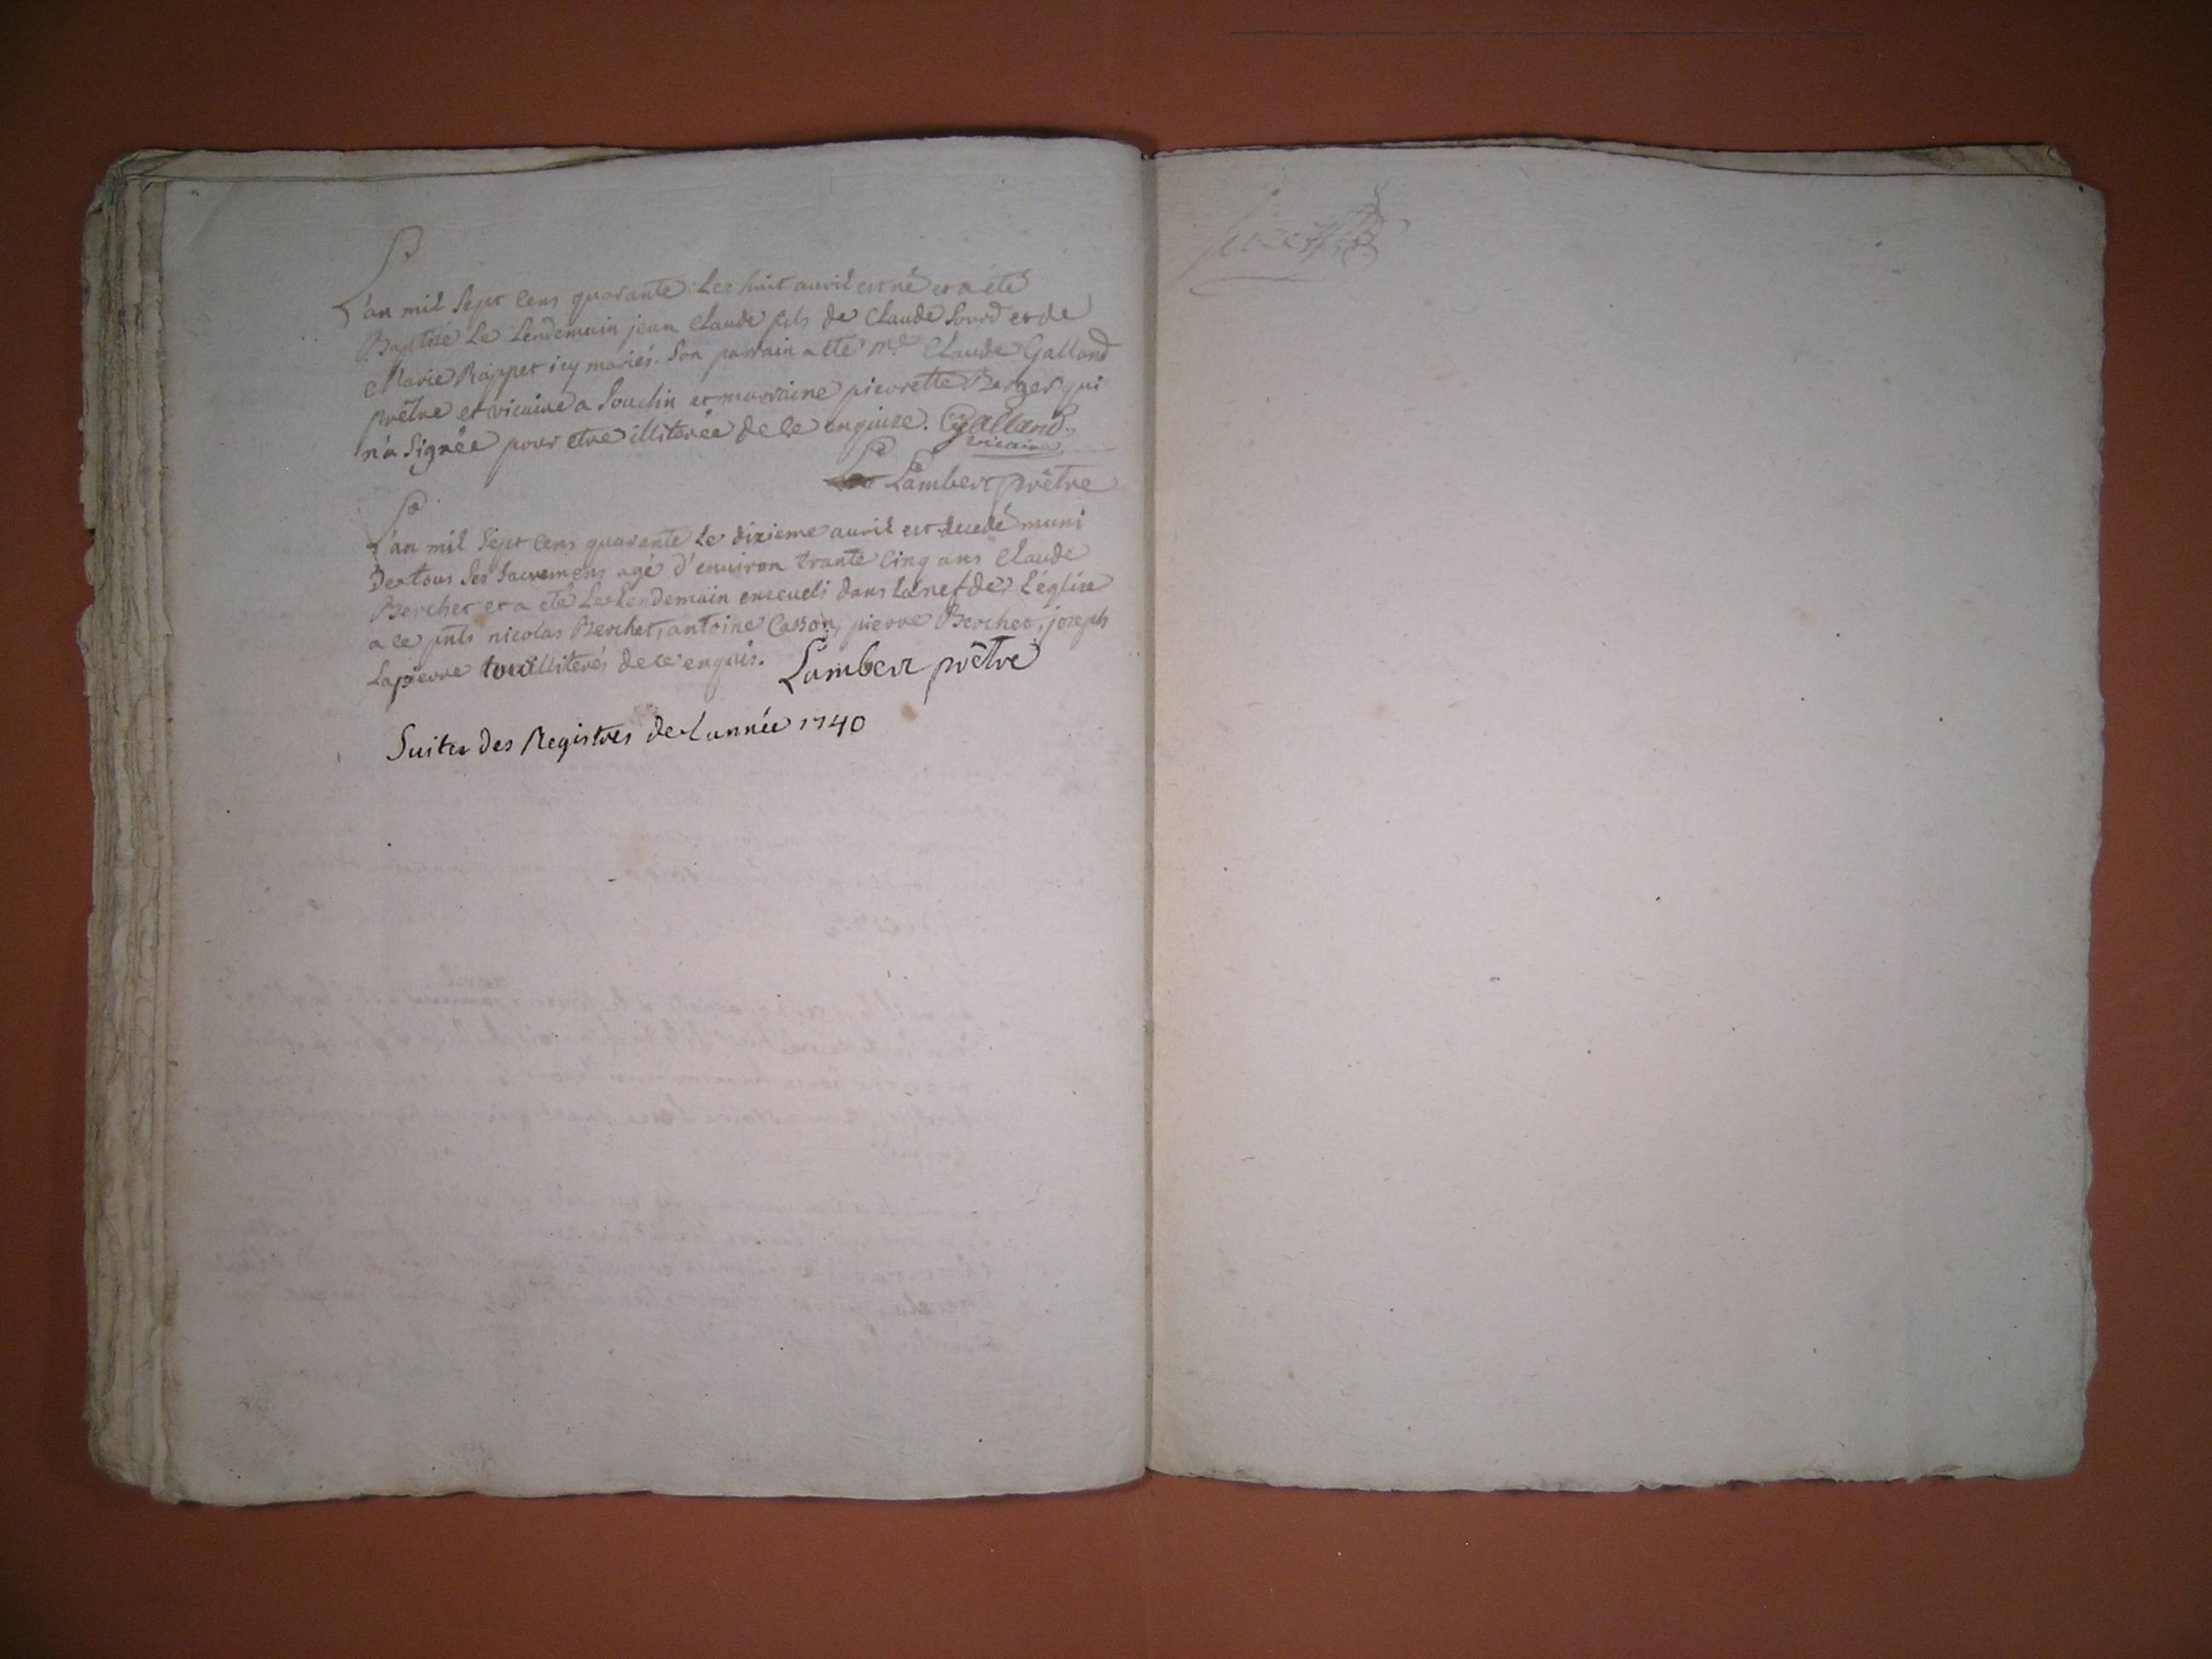 L'an mil sept cens quarante Les huit auril est né et a été
Baptisé Le Lendemain jean Claude fils de Claude Sourd et de
Marie Rappet icy mariés. Son parrain a été mre Claude Galland
prêtre et vicaire a Souclin et marraine pierrette Berger qui
n'a Signée pour etre illiterée de ce enquise. Galland
vicaire
Lambert prêtre
L'an mil Sept cens quarante Le dixieme auril est decedé muni
De tous ses Sacremens agé d'enuiron trante cinq ans Claude
Berchet et a eté Le Lendemain enseueli dans la nef de L'église
a ce pnts nicolas Berchet, antoine Casson, pierre Berchet, joseph
Lapierre tous illiterés de ce enquis. Lambert prêtre
Suite des Registres de L'année 1740